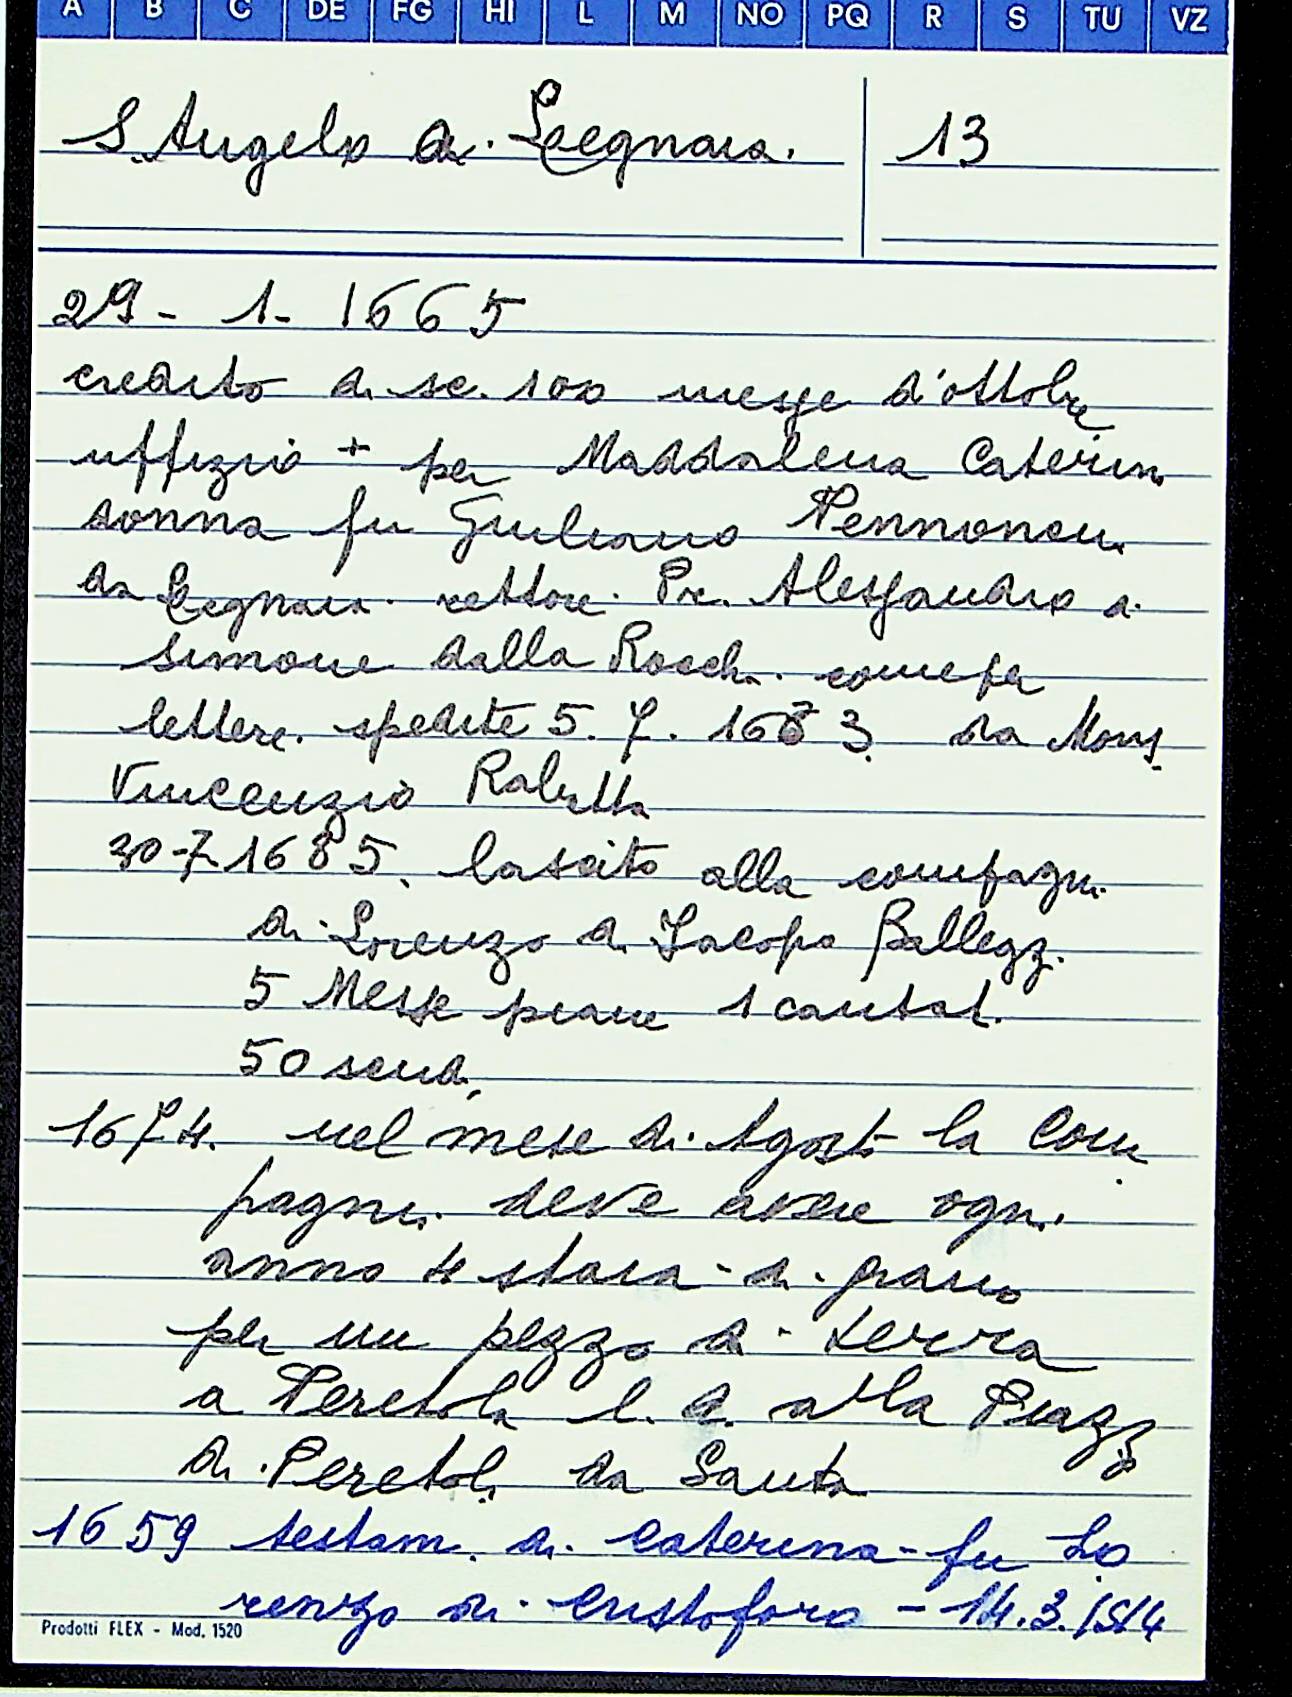 A B C DE FG HI L M NO PQ R S TU VZ
S. Angelo a Legnaia. 13
29 - 1 - 1665
credito di sc. 100 messe d'ottobre
uffizio + per Maddalena Caterin.
donna fu Giuliano Pennoncin.
da Legnaia. rettore. Pre. Alessandro di
Simone dalla Rocch. come per
lettere. spedite 5. 7. 1683 da Mons.
Vincenzio Rabatta
30-7-1685. lascito alla compagn.
di Lorenzo di Jacopo Ballegz.
5 Messe piane 1 cantat.
50 scudi.
1674. nel mese di Agosto la Com
pagni. deve avere ogni
anno 4 staia di grano
per un pezzo di terra
a Peretola l. d. alla Piazz
di Peretol. da Santa
1659 testam. di Caterina fu Lo
renzo di Cristoforo - 14.3.
Prodotti FLEX - Mod. 1520